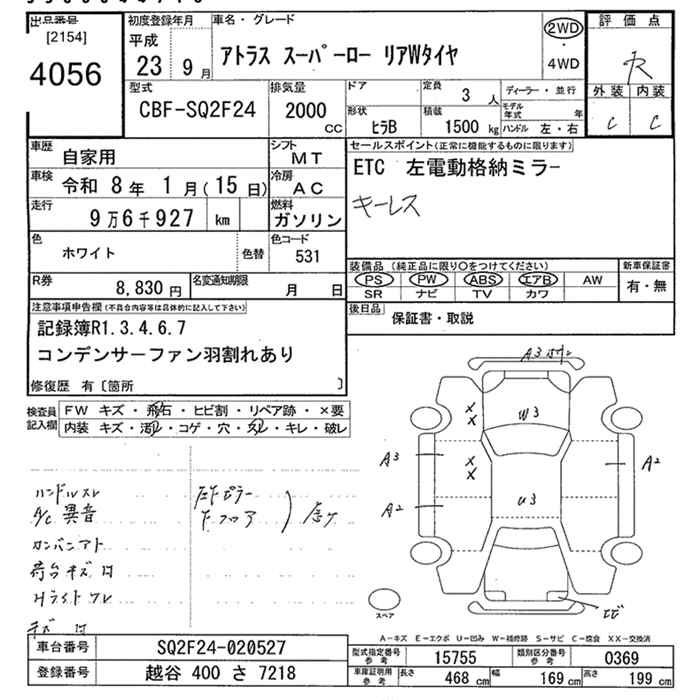 出品番号
[2154]
4056
初度登録年月
平成
23 9月
車名・グレード
アトラス スーパーロー リアWタイヤ
2WD
・
4WD
評価点
R
外装 内装
C C
型式
CBF-SQ2F24
排気量
2000
CC
ドア
形状
ヒラB
定員
3 人
積載
1500 kg
ディーラー・並行
モデル年式 年
ハンドル 左・右
車歴
自家用
シフト
MT
車検
令和 8年 1月(15日)
冷房
AC
走行
9万6千927 km
燃料
ガソリン
色
ホワイト
色替
色コード
531
R券
8,830 円
名変通知期限
月 日
セールスポイント(正常に機能するものに限ります)
ETC 左電動格納ミラー
キーレス
装備品 (純正品に限り○をつけてください)
PS PW ABS エアB AW
SR ナビ TV カワ
新車保証書
有・無
後日品
保証書・取説
注意事項申告欄(不具合内容等は具体的に記入して下さい)
記録簿R1.3.4.6.7
コンデンサーファン羽割れあり
修復歴 有〔箇所 〕
検査員記入欄
FW キズ・飛石・ヒビ割・リペア跡・×要
内装 キズ・汚れ・コゲ・穴・スレ・キレ・破レ
ハンドルスレ
A/C異音
カンバンアト
荷台キズ凹
Hライトクレ
キズ凹
左ドピラー
下フロア
A3
W3
A3
A2
A2
U3
ヒビ
スペア
A-キズ E-エクボ U-凹み W-補修跡 S-サビ C-腐食 XX-交換済
車台番号
SQ2F24-020527
登録番号
越谷 400 さ 7218
型式指定番号
参考
15755
類別区分番号
参考
0369
車庫証明用
参考
長さ
468 cm
幅
169 cm
高さ
199 cm